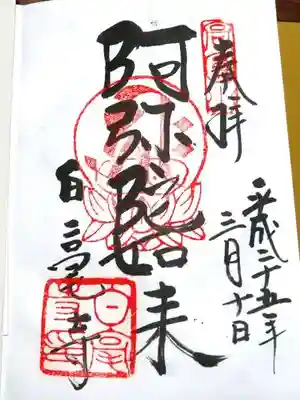 奉拝
平成二十五年
三月十日
阿弥陀如来
白 寺